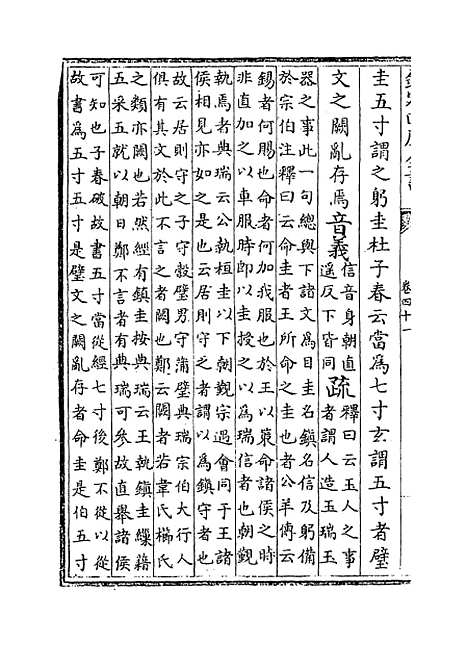 卷四十一
圭五寸謂之躬圭杜子春云當為七寸玄謂五寸者璧
文之闕亂存焉音義信音身朝直遥反下皆同疏釋曰云玉人之事者謂人造玉瑞玉
器之事此一句總與下諸文為目圭名鎮名信及躬備
於宗伯注釋曰云命圭者王所命之圭也者公羊傳云
錫者何賜也命者何加我服也於王以䇿命諸侯之時
非直加之以車服時即以圭授之以為瑞信者也朝覲
執焉者典瑞云公執桓圭以下朝覲宗遇會同于王諸
侯相見亦如之是也云居則守之者謂以為鎮守者也
故云居則守之子守穀璧男守蒲璧典瑞宗伯大行人
俱有其文於此不言之者闕也鄭云闕者若韋氏櫛氏
之類亦闕也若然經有鎮圭按典瑞云王執鎮圭繅藉
五采五就以朝日鄭不言者有典瑞可參故直舉諸侯
可知也子春破故書五寸當從經七寸後鄭不從以從
故書為五寸五寸是璧文之闕亂存者命圭是伯五寸